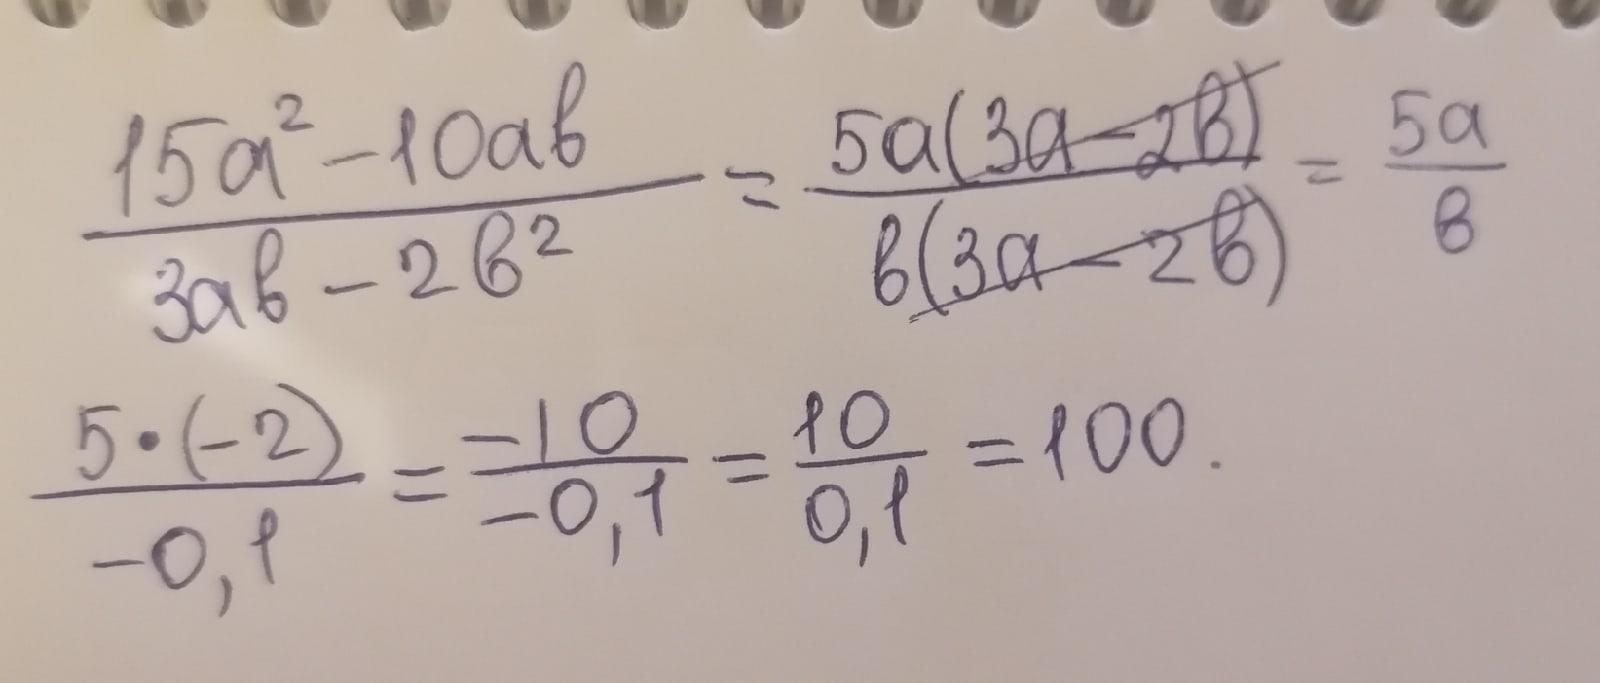 (15a² - 10aв)/(3aв - 2в²) = (5a(3a - 2в))/(в(3a - 2в)) = 5a/в
(5·(-2))/(-0,1) = (-10)/(-0,1) = 10/0,1 = 100.